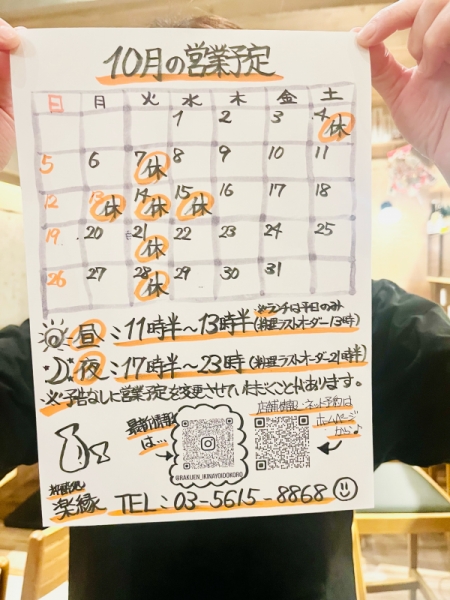 10月の営業予定
日 月 火 水 木 金 土
1 2 3 4休
5 6 7休 8 9 10 11
12 13休 14休 15休 16 17 18
19 20 21休 22 23 24 25
26 27 28休 29 30 31
※ランチは平日のみ
昼：11時半～13時半(料理ラストオーダー13時)
夜：17時半～23時(料理ラストオーダー21時半)
※予告なしに営業予定を変更させていただくことがあります。
最新情報は…
@RAKUEN_IKINAYOIDOKORO
店舗情報・ネット予約は
ホームページから♪
楽縁 TEL：03-5615-8868